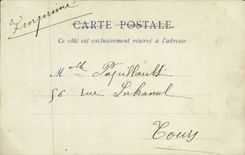 Imprimé
CARTE POSTALE
Ce côté est exclusivement réservé à l'adresse
M lle Papillault
56 rue Lakanal
Tours